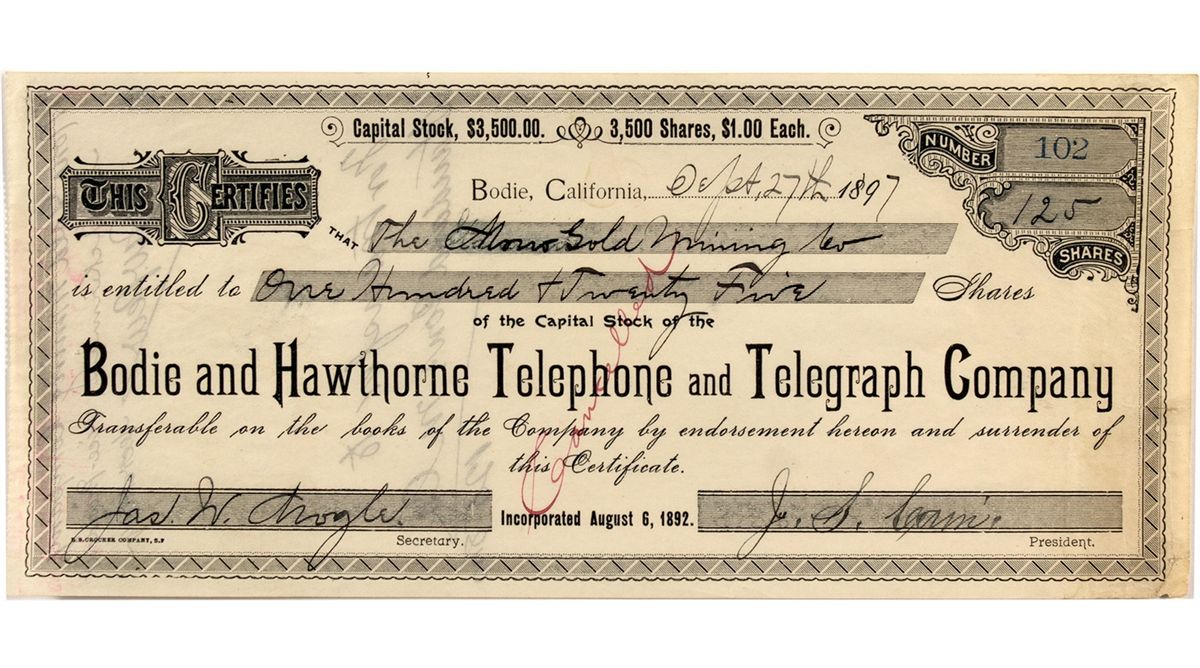 Capital Stock, $3,500.00. 3,500 Shares, $1.00 Each.
NUMBER 102
THIS CERTIFIES
Bodie, California, Sept. 27th 1897
125
SHARES
THAT The Mono Gold Mining Co
is entitled to One Hundred & Twenty Five Shares
of the Capital Stock of the
Bodie and Hawthorne Telephone and Telegraph Company
Transferable on the books of the Company by endorsement hereon and surrender of
this Certificate.
Cancelled
Jas. W. J. S.
Incorporated August 6, 1892.
H.S. CROCKER COMPANY, S.F
Secretary. President.